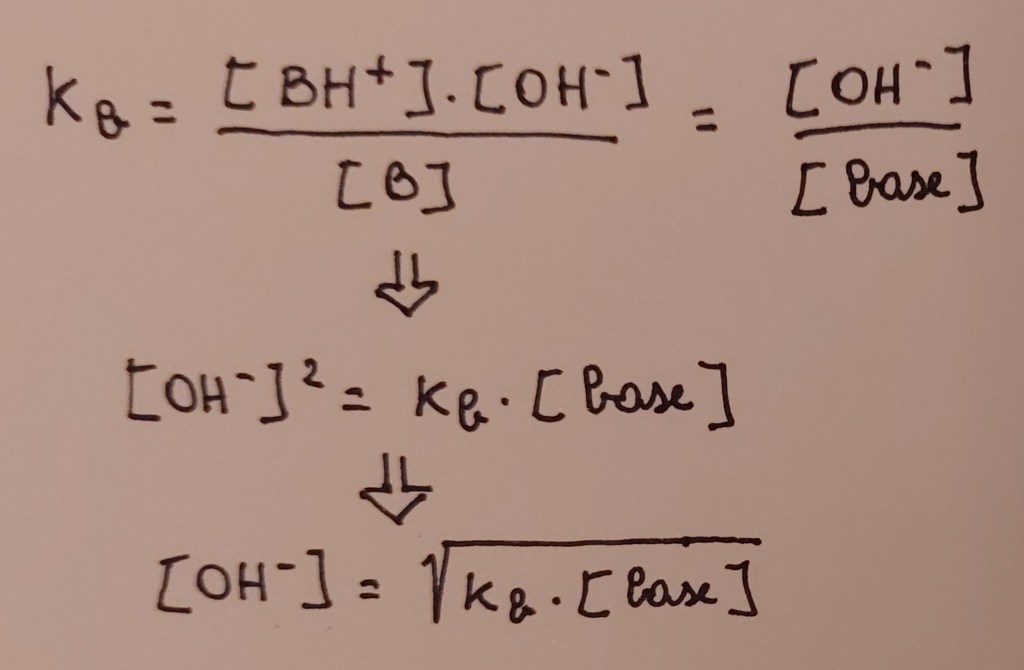 K_b = [BH⁺].[OH⁻] / [B] = [OH⁻] / [base]
⇓
[OH⁻]² = K_b . [base]
⇓
[OH⁻] = √K_b . [base]